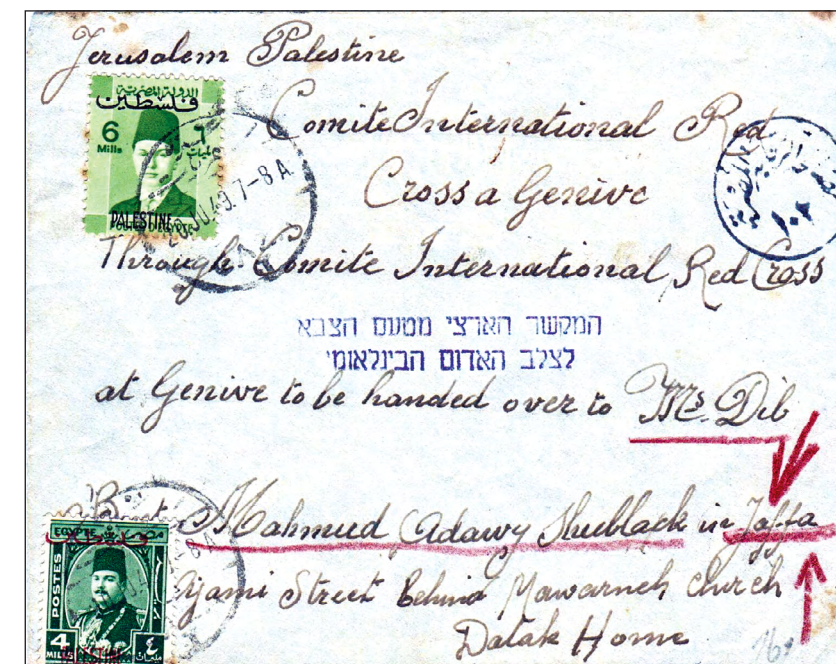 Jerusalem Palestine
الدولة المصرية
فلسطين
6
Mills
PALESTINE
7-8 A
Comite International Red
Cross a Genive
Through Comite International Red Cross
המקשר הארצי מטעם הצבא
לצלב האדום הבינלאומי
at Genive to be handed over to Mrs. Dib
Mahmud Adawy Shublack in Jaffa
Ajami Street Behind Mawarneh church
Datak Home
EGYPTE
POSTES
4
MILLS
٤
PALESTINE